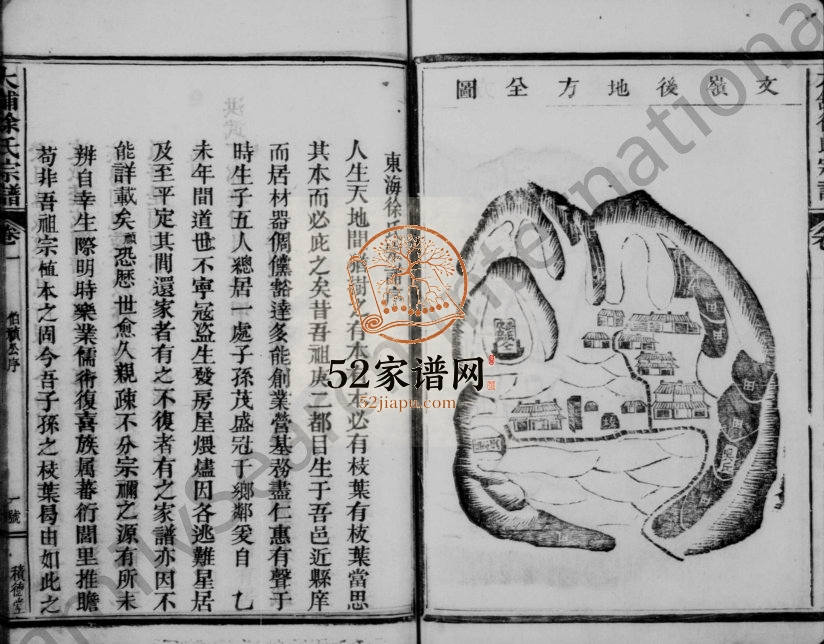 文嶺後地方全圖
東海徐氏
人生天地間猶樹有本有本必有枝葉有枝葉當思
其本而必庇之矣昔吾祖庚二都目生于吾邑近縣庠
而居材器倜儻豁達多能創業營基務盡仁惠有聲于
時生子五人總居一處子孫茂盛冠于鄉鄰爰自 乜
未年間道世不寧冦盜生發房屋煨燼因各逃難星居
及至平定其間還家者有之不復者有之家譜亦因不
能詳載矣顧恐歷世愈久親疎不分宗禰之源有所未
辨自幸生際明時樂業儒術復喜族属蕃衍閭里推瞻
苟非吾祖宗植本之固今吾子孫之枝葉曷由如此之
大鋪徐氏宗譜
卷一
伯顧公序
一號
積德堂
52家谱网
52jiapu.com
FamilySearch International